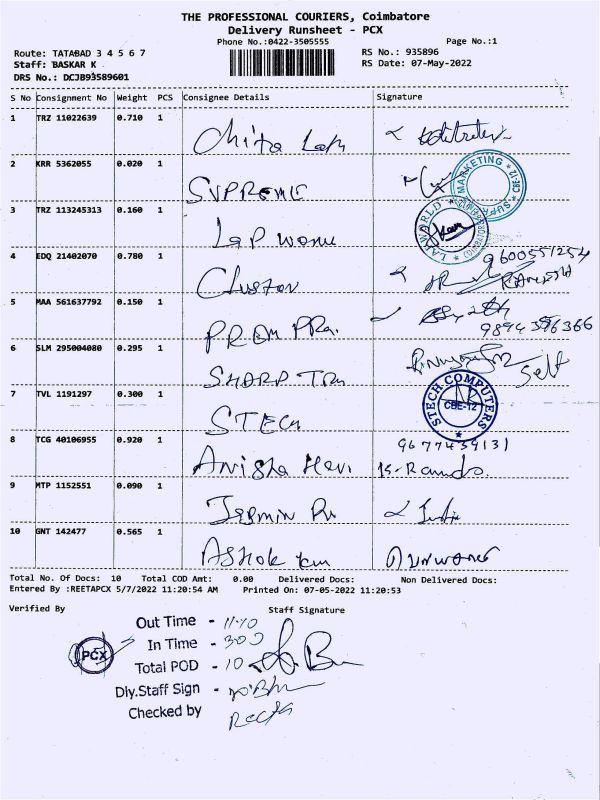 THE PROFESSIONAL COURIERS, Coimbatore
Delivery Runsheet - PCX
Phone No.:0422-3505555 Page No.:1
Route: TATABAD 3 4 5 6 7 RS No.: 935896
Staff: BASKAR K RS Date: 07-May-2022
DRS No.: DCJB93589601
S No Consignment No Weight PCS Consignee Details Signature
1 TRZ 11022639 0.710 1 Chitra
2 KRR 5362055 0.020 1 SUPREME
MARKETING CBE-12
3 TRZ 113245313 0.160 1 LAP
LAPWORLD
4 EDQ 21402070 0.780 1 9600551254
5 MAA 561637792 0.150 1 PROM PRa. 9894396366
6 SLM 295004080 0.295 1 SHARP Self
7 TVL 1191297 0.300 1 STECH
STECH COMPUTERS CBE-12
8 TCG 40106955 0.920 1 Anisha 9677439131
9 MTP 1152551 0.090 1 Jasmin
10 GNT 142477 0.565 1 ASHOK
Total No. Of Docs: 10 Total COD Amt: 0.00 Delivered Docs: Non Delivered Docs:
Entered By :REETAPCX 5/7/2022 11:20:54 AM Printed On: 07-05-2022 11:20:53
Verified By Staff Signature
Out Time - 11.40
In Time - 300
PCX
Total POD - 10
Dly.Staff Sign -
Checked by Reeta